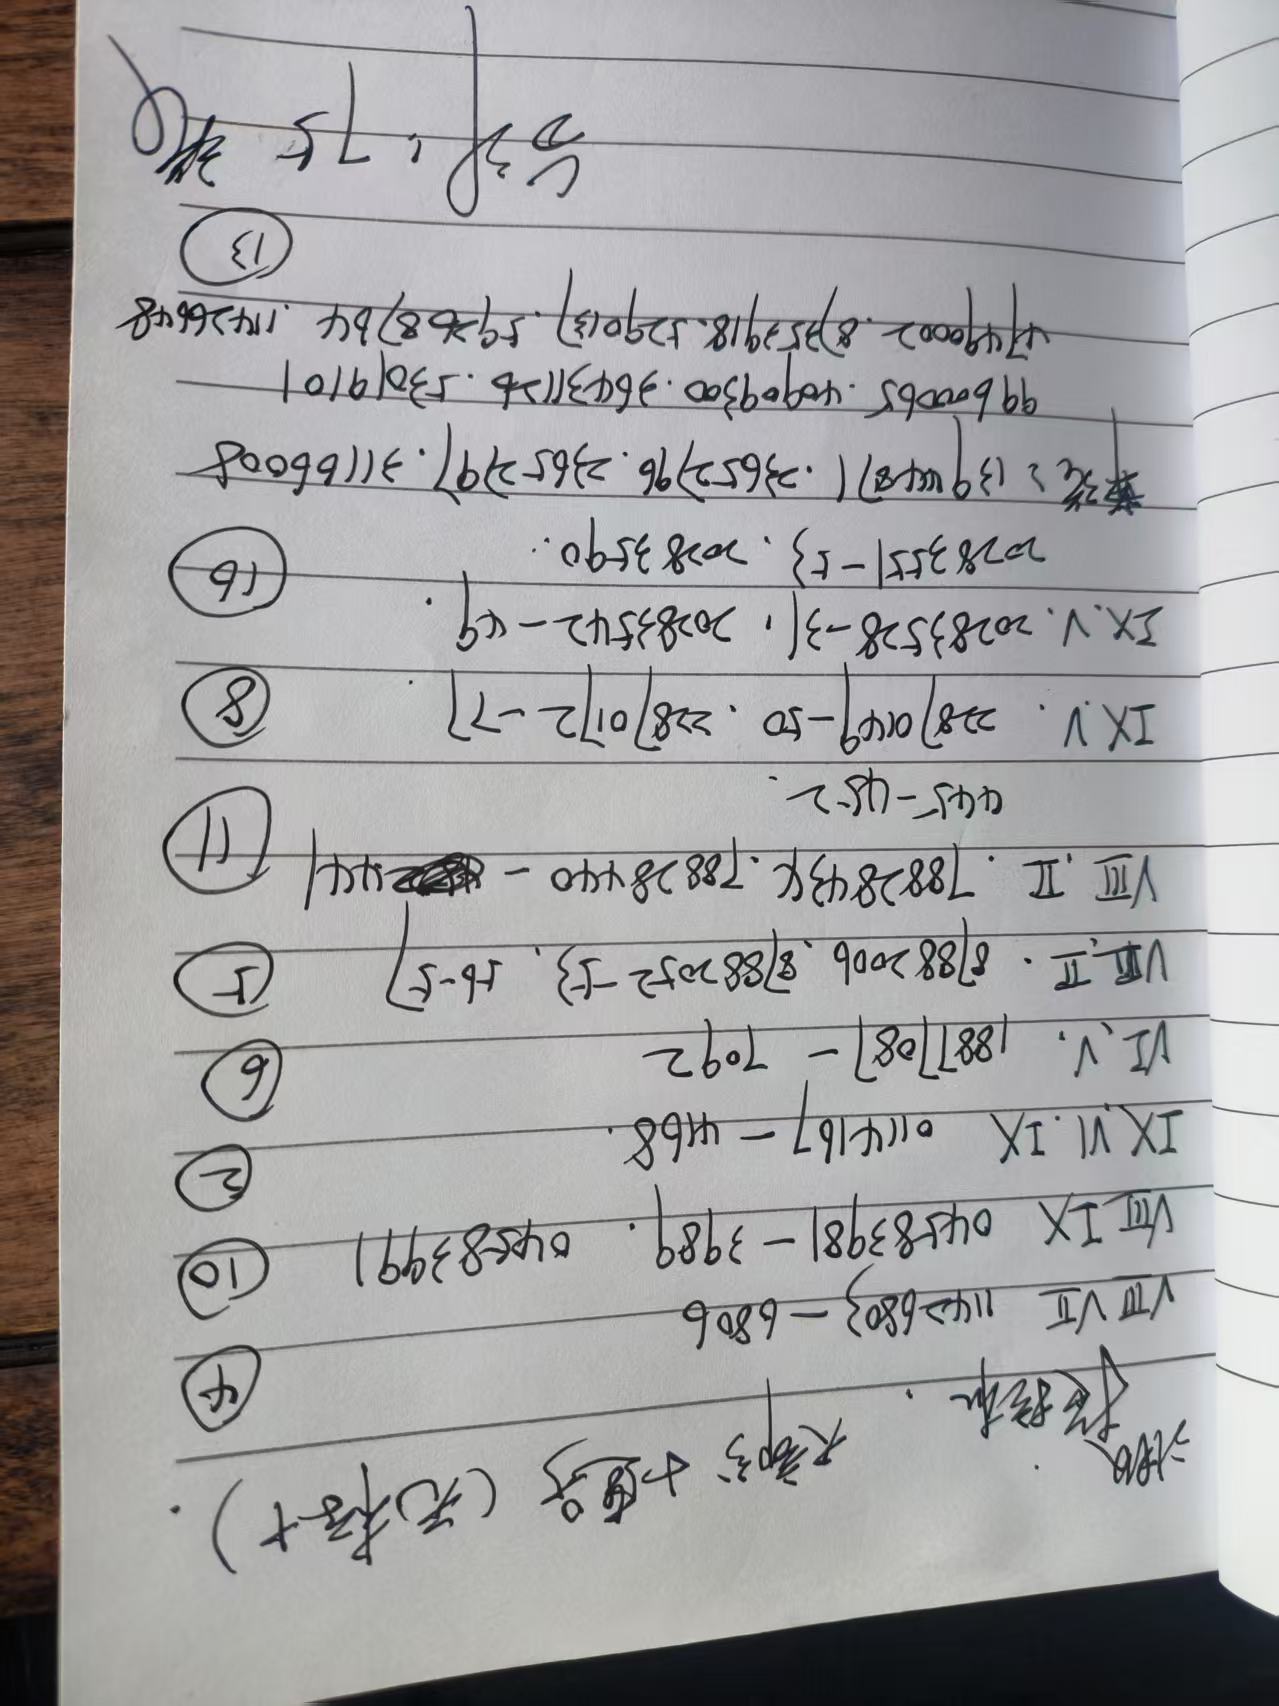 VIII VII 11426803 – 6806 ④
VIII IX 04583981 – 3989. 04583991 ⑩
IX VI. IX 0114167 – 4168. ②
VI. V. 18877087 – 7092 ⑥
VIII. II. 87882006. 87882052-53. 56-57 ⑤
VIII. II. 78828434. 78828440 – 441 ⑪
445-452.
IX. V. 22870149-50. 22870172-77. ⑧
IX. V. 20283528-31. 20283542-49.
20283551-53. 20283590. ⑯
其它: 13944871. 23652796. 23652797. 31166008
99600065. 40909300. 36431126. 53019101
47490002. 87353918. 5290137. 59268764. 11426648
⑬
75 张